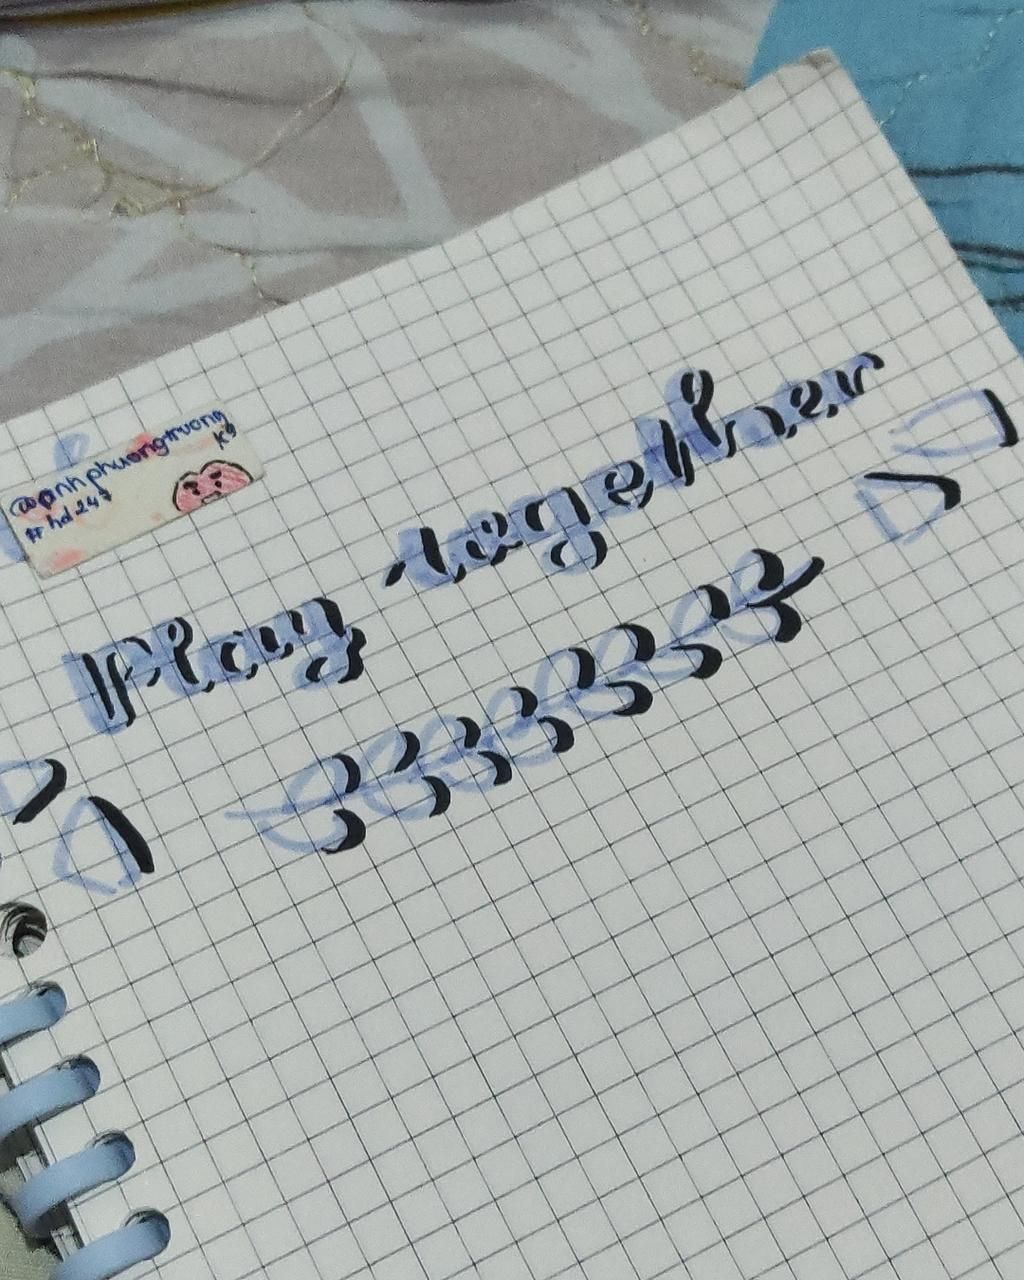 @anhphuongtruong
K9
# hd247
Play together